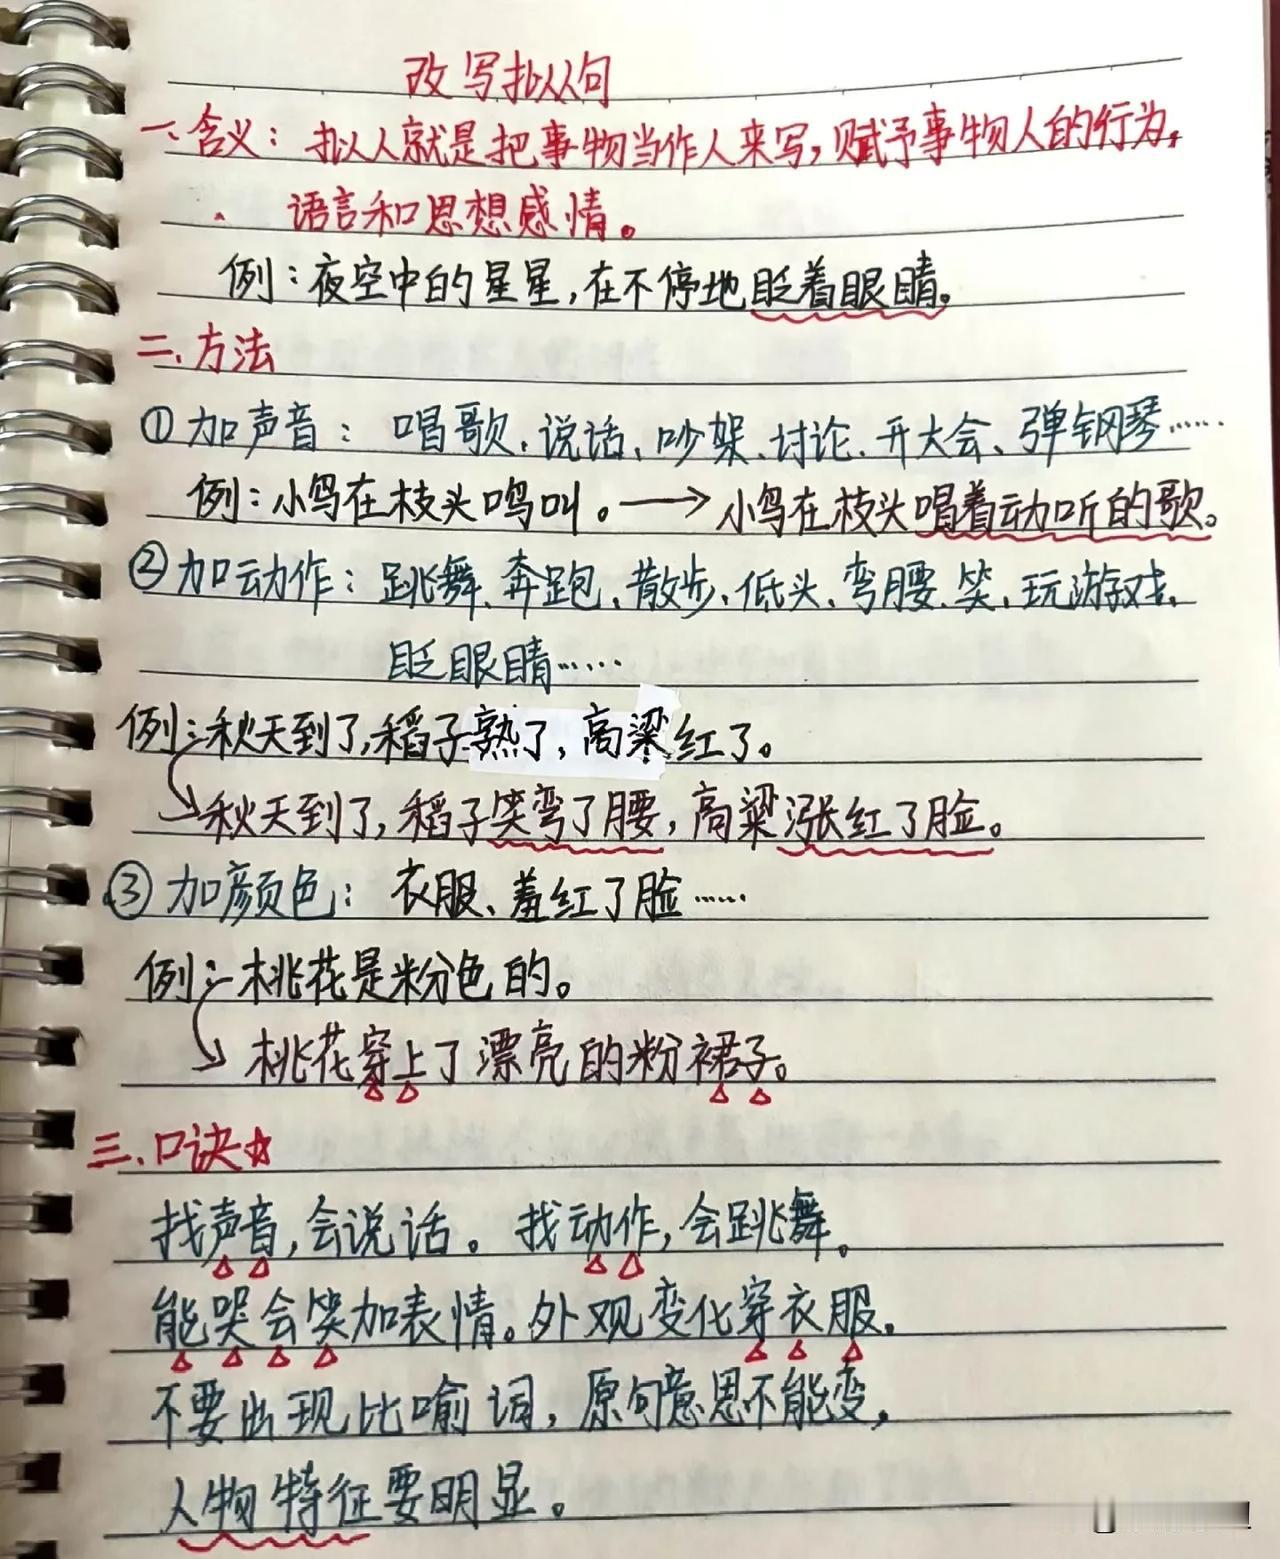 改写拟人句
一、含义：拟人就是把事物当作人来写，赋予事物人的行为，
语言和思想感情。
例：夜空中的星星，在不停地眨着眼睛。
二、方法
①加声音：唱歌、说话、吵架、讨论、开大会、弹钢琴……
例：小鸟在枝头鸣叫。→小鸟在枝头唱着动听的歌。
②加动作：跳舞、奔跑、散步、低头、弯腰、笑、玩游戏、
眨眼睛……
例：秋天到了，稻子熟了，高粱红了。
秋天到了，稻子笑弯了腰，高粱涨红了脸。
③加颜色：衣服、羞红了脸……
例：桃花是粉色的。
桃花穿上了漂亮的粉裙子。
三、口诀☆
找声音，会说话。找动作，会跳舞。
能哭会笑加表情。外观变化穿衣服。
不要出现比喻词，原句意思不能变，
人物特征要明显。